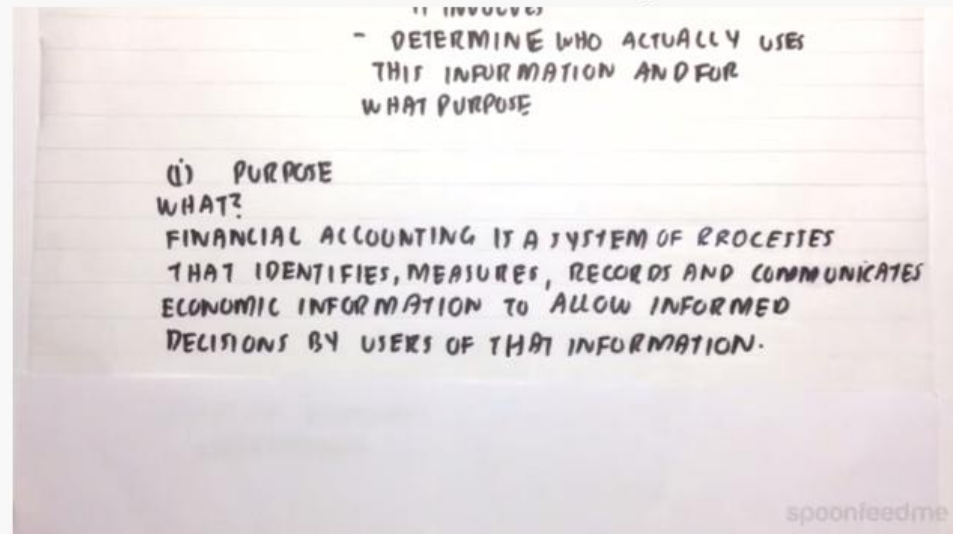 IT INVOLVES
- DETERMINE WHO ACTUALLY USES
THIS INFORMATION AND FOR
WHAT PURPOSE
(i) PURPOSE
WHAT?
FINANCIAL ACCOUNTING IS A SYSTEM OF PROCESSES
THAT IDENTIFIES, MEASURES, RECORDS AND COMMUNICATES
ECONOMIC INFORMATION TO ALLOW INFORMED
DECISIONS BY USERS OF THAT INFORMATION.
spoonfeedme